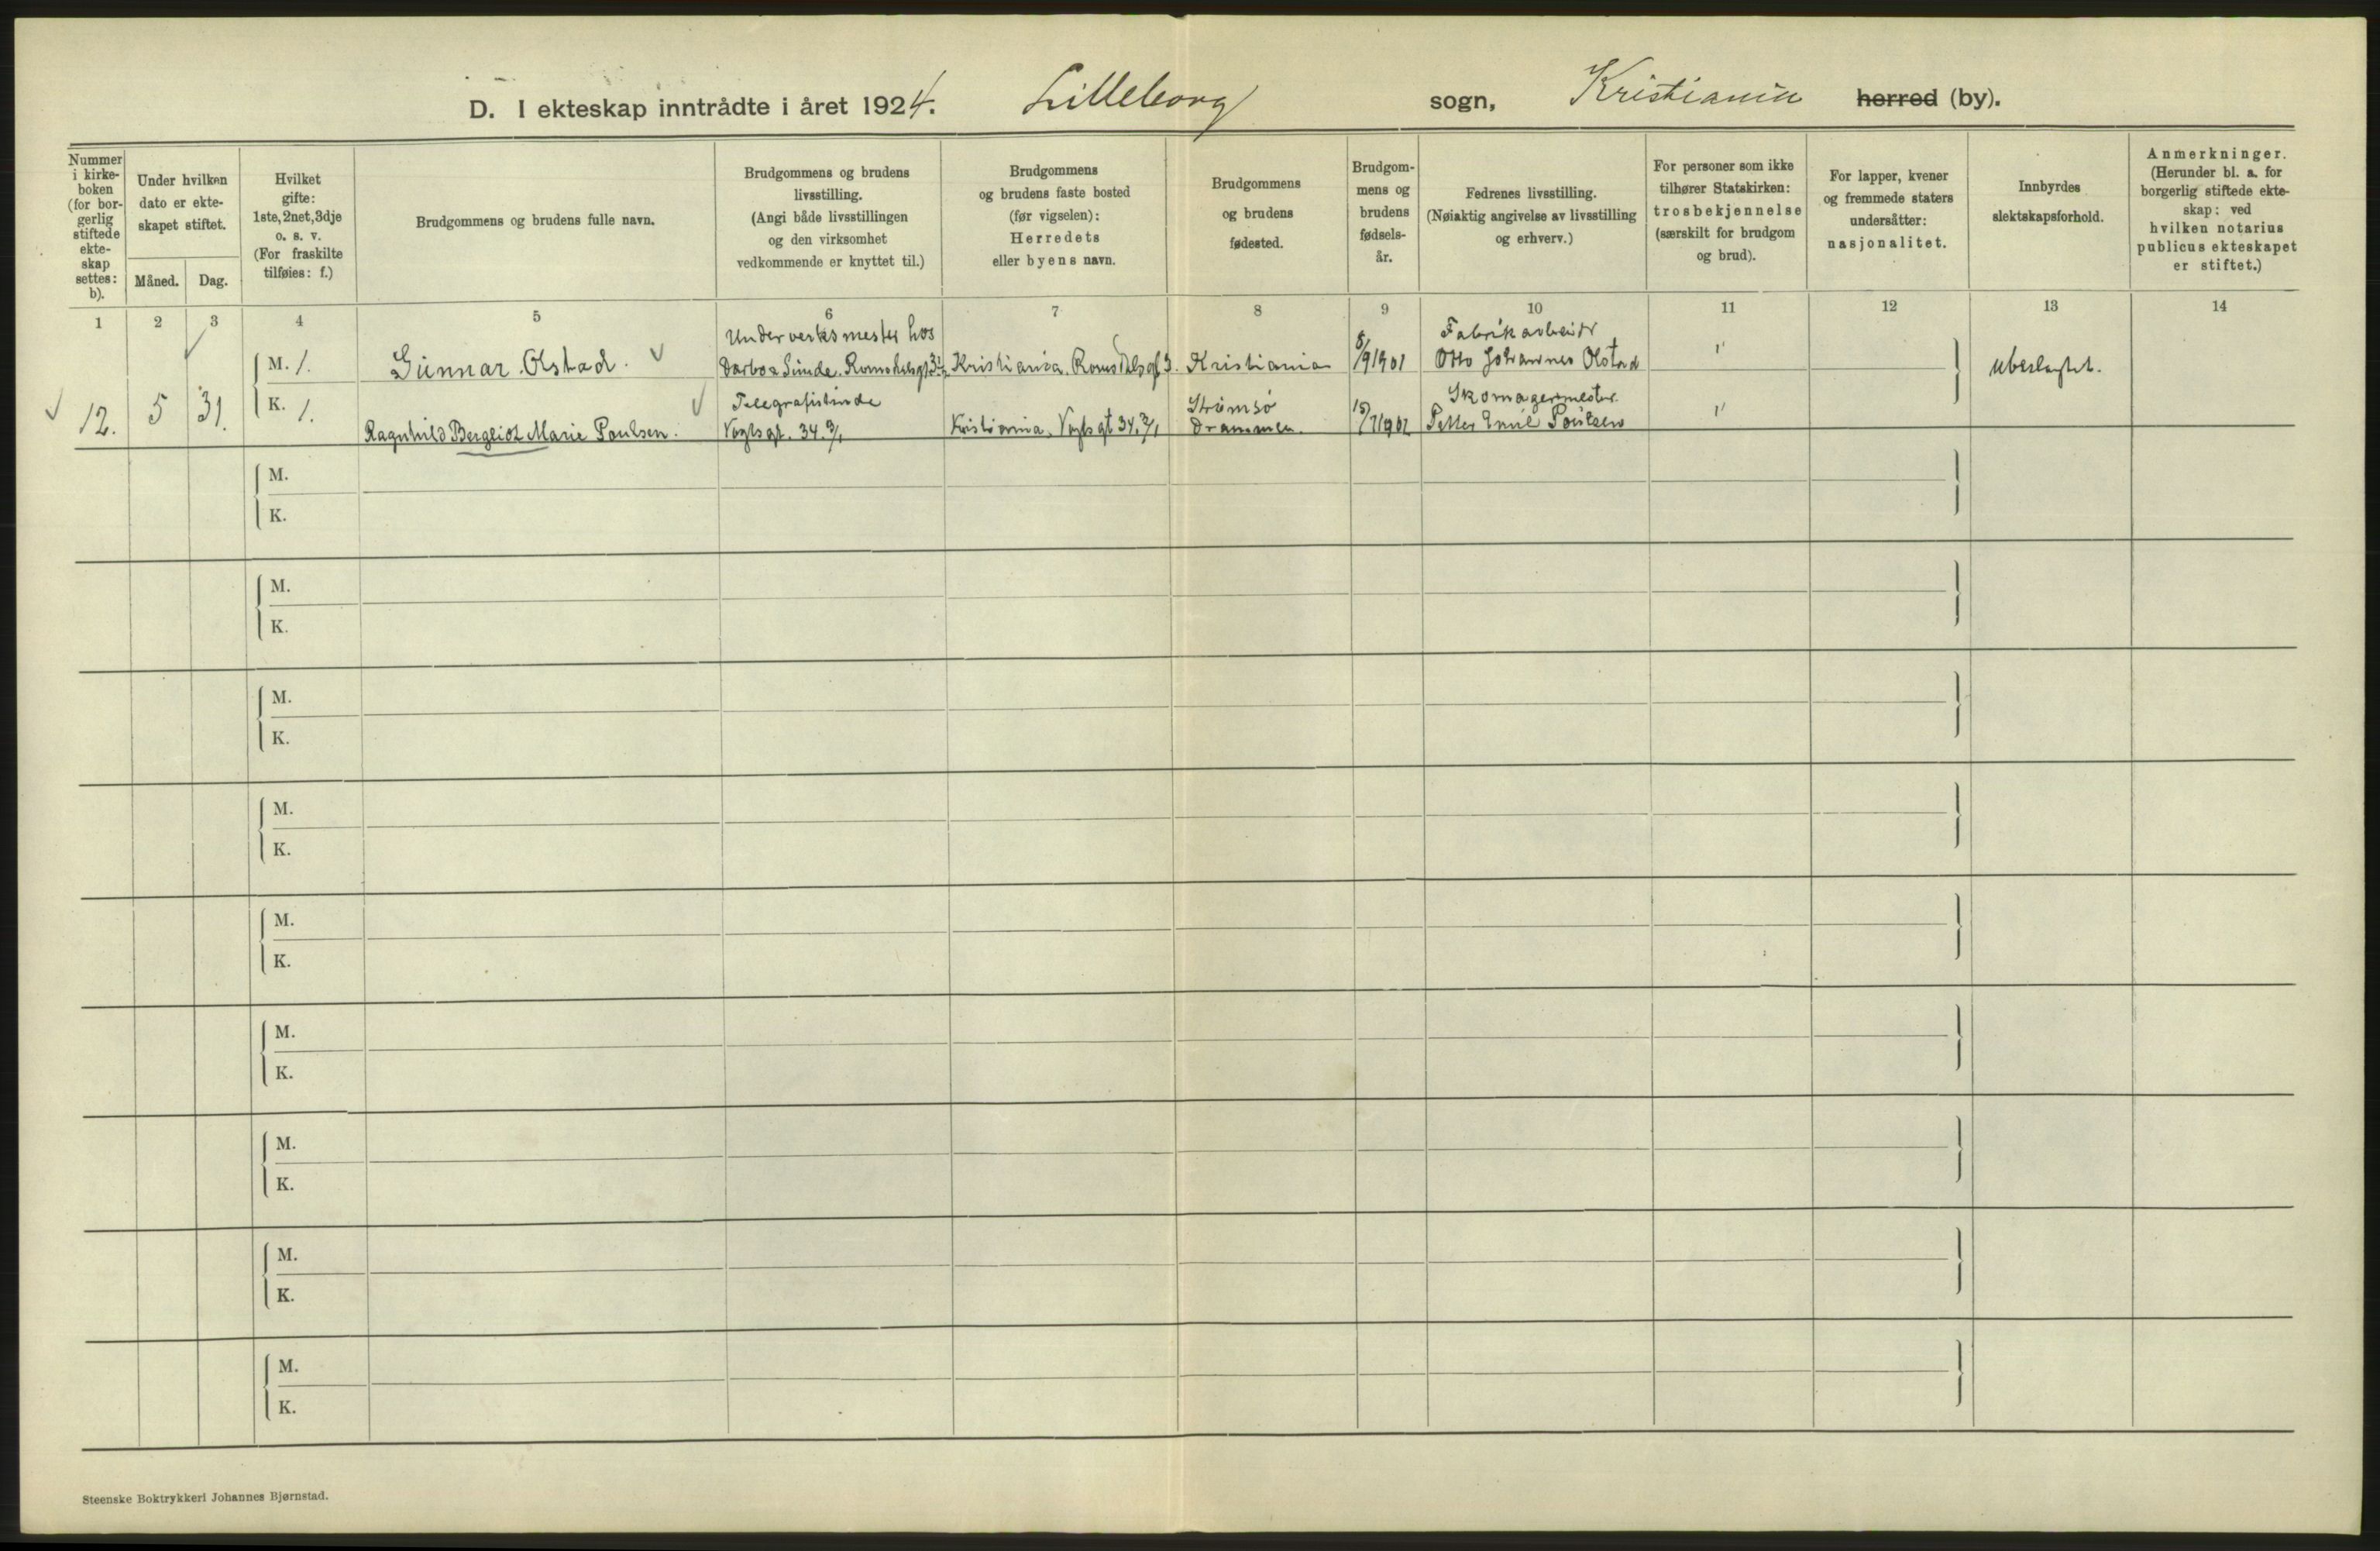 D. I ekteskap inntrådte i året 1924. Lilleborg sogn, Kristiania herred (by).
Nummer i kirkeboken (for borgerlig stiftede ekteskap settes: b).
Under hvilken dato er ekteskapet stiftet.
Måned. Dag.
Hvilket gifte: 1ste, 2net, 3dje o. s. v. (For fraskilte tilføies: f.)
Brudgommens og brudens fulle navn.
Brudgommens og brudens livsstilling. (Angi både livsstillingen og den virksomhet vedkommende er knyttet til.)
Brudgommens og brudens faste bosted (før vigselen): Herredets eller byens navn.
Brudgommens og brudens fødested.
Brudgommens og brudens fødselsår.
Fedrenes livsstilling. (Nøiaktig angivelse av livsstilling og erhverv.)
For personer som ikke tilhører Statskirken: trosbekjennelse (særskilt for brudgom og brud).
For lapper, kvener og fremmede staters undersåtter: nasjonalitet.
Innbyrdes slektskapsforhold.
Anmerkninger. (Herunder bl. a. for borgerlig stiftede ekteskap: ved hvilken notarius publicus ekteskapet er stiftet.)
1 2 3 4 5 6 7 8 9 10 11 12 13 14
Underverksmester hos
Fabrikarbeider
M. 1. Gunnar Olstad. Kristiania. Romsdalsgt 3. Kristiania 8/9 1901 Otto Johannes Olstad " ubeslegtet.
12. 5 31. K. 1. Telegrafistinde Strømsø Skomagermester "
Ragnhild Bergliot Marie Paulsen. Vogtsgt. 34.3/1 Kristiania, Vogtsgt 34.3/1 Drammen. 15/7 1902 Petter Emil Paulsen
M.
K.
M.
K.
M.
K.
M.
K.
M.
K.
M.
K.
M.
K.
M.
K.
M.
K.
Steenske Boktrykkeri Johannes Bjørnstad.